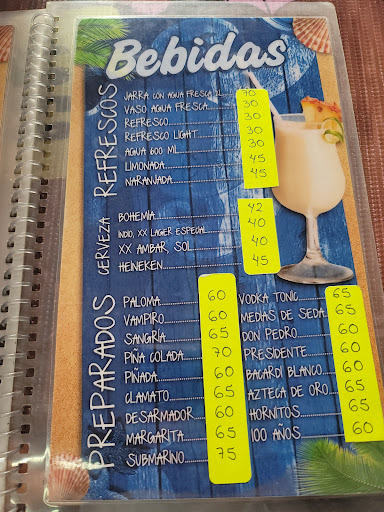 Bebidas
REFRESCOS
JARRA CON AGUA FRESCA 2L 70
VASO AGUA FRESCA 30
REFRESCO 30
REFRESCO LIGHT 30
AGUA 600 ML 30
LIMONADA 45
NARANJADA 45
CERVEZA
BOHEMIA 42
INDIO, XX LAGER ESPECIAL 40
XX AMBAR, SOL 40
HEINEKEN 45
PREPARADOS
PALOMA 60
VAMPIRO 60
SANGRÍA 65
PIÑA COLADA 70
PIÑADA 60
CLAMATO 65
DESARMADOR 60
MARGARITA 65
SUBMARINO 75
VODKA TONIC 65
MEDIAS DE SEDA 65
DON PEDRO 60
PRESIDENTE 60
BACARDI BLANCO 60
AZTECA DE ORO 65
HORNITOS 65
100 AÑOS 60